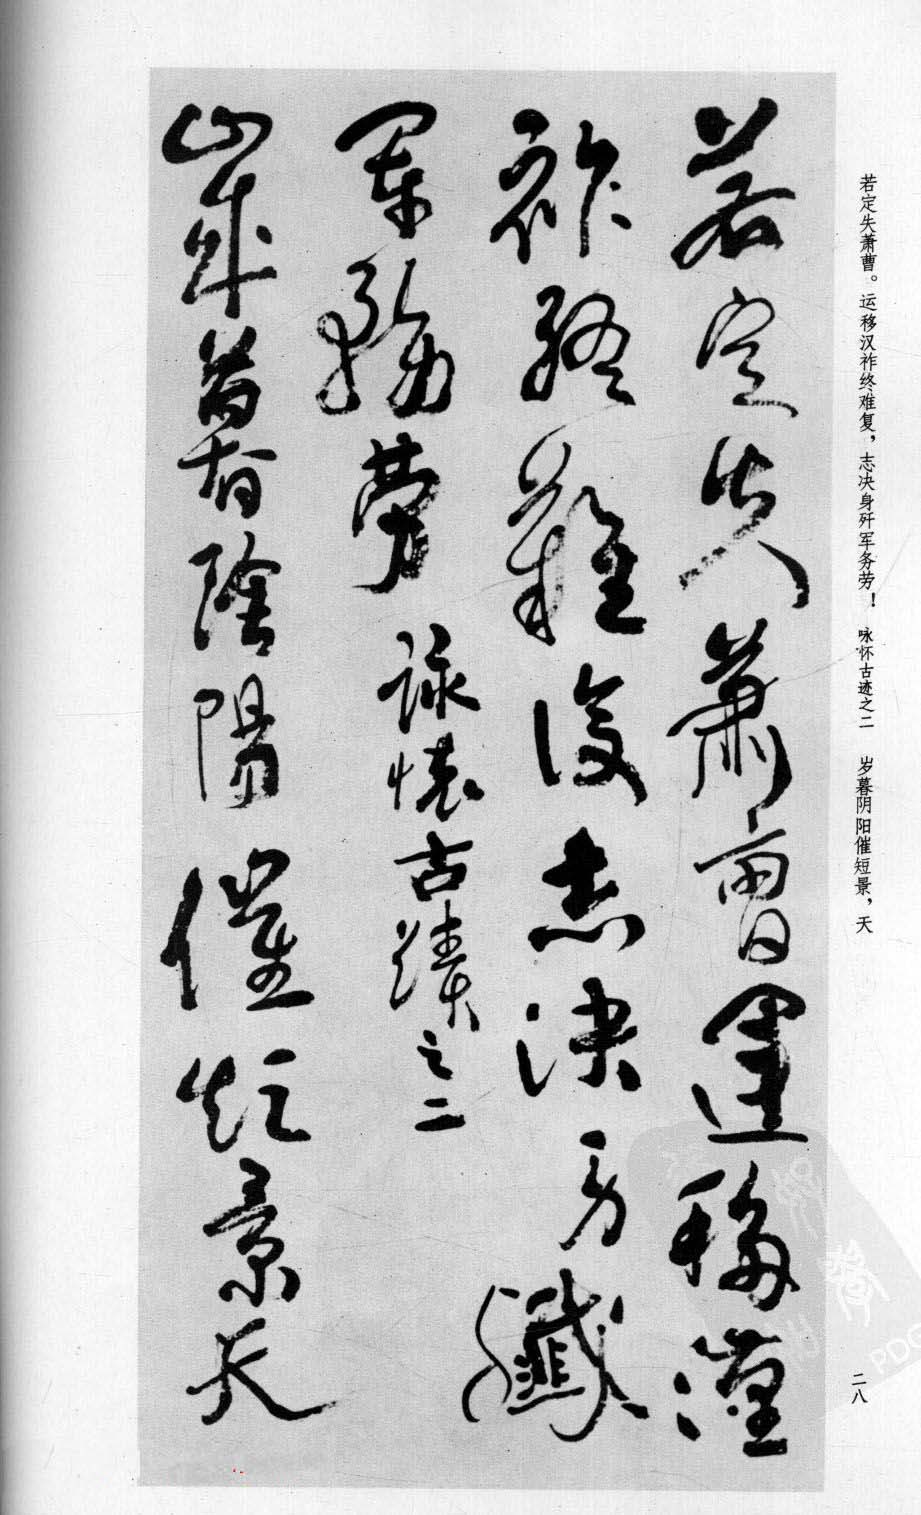 若定失萧曹。运移汉祚终难复，志决身歼军务劳！ 咏怀古迹之二 岁暮阴阳催短景，天
若定失蕭曹運移漢
祚終難復志決身殲
軍務勞 詠懷古蹟之二
歲暮陰陽催短景天
二八